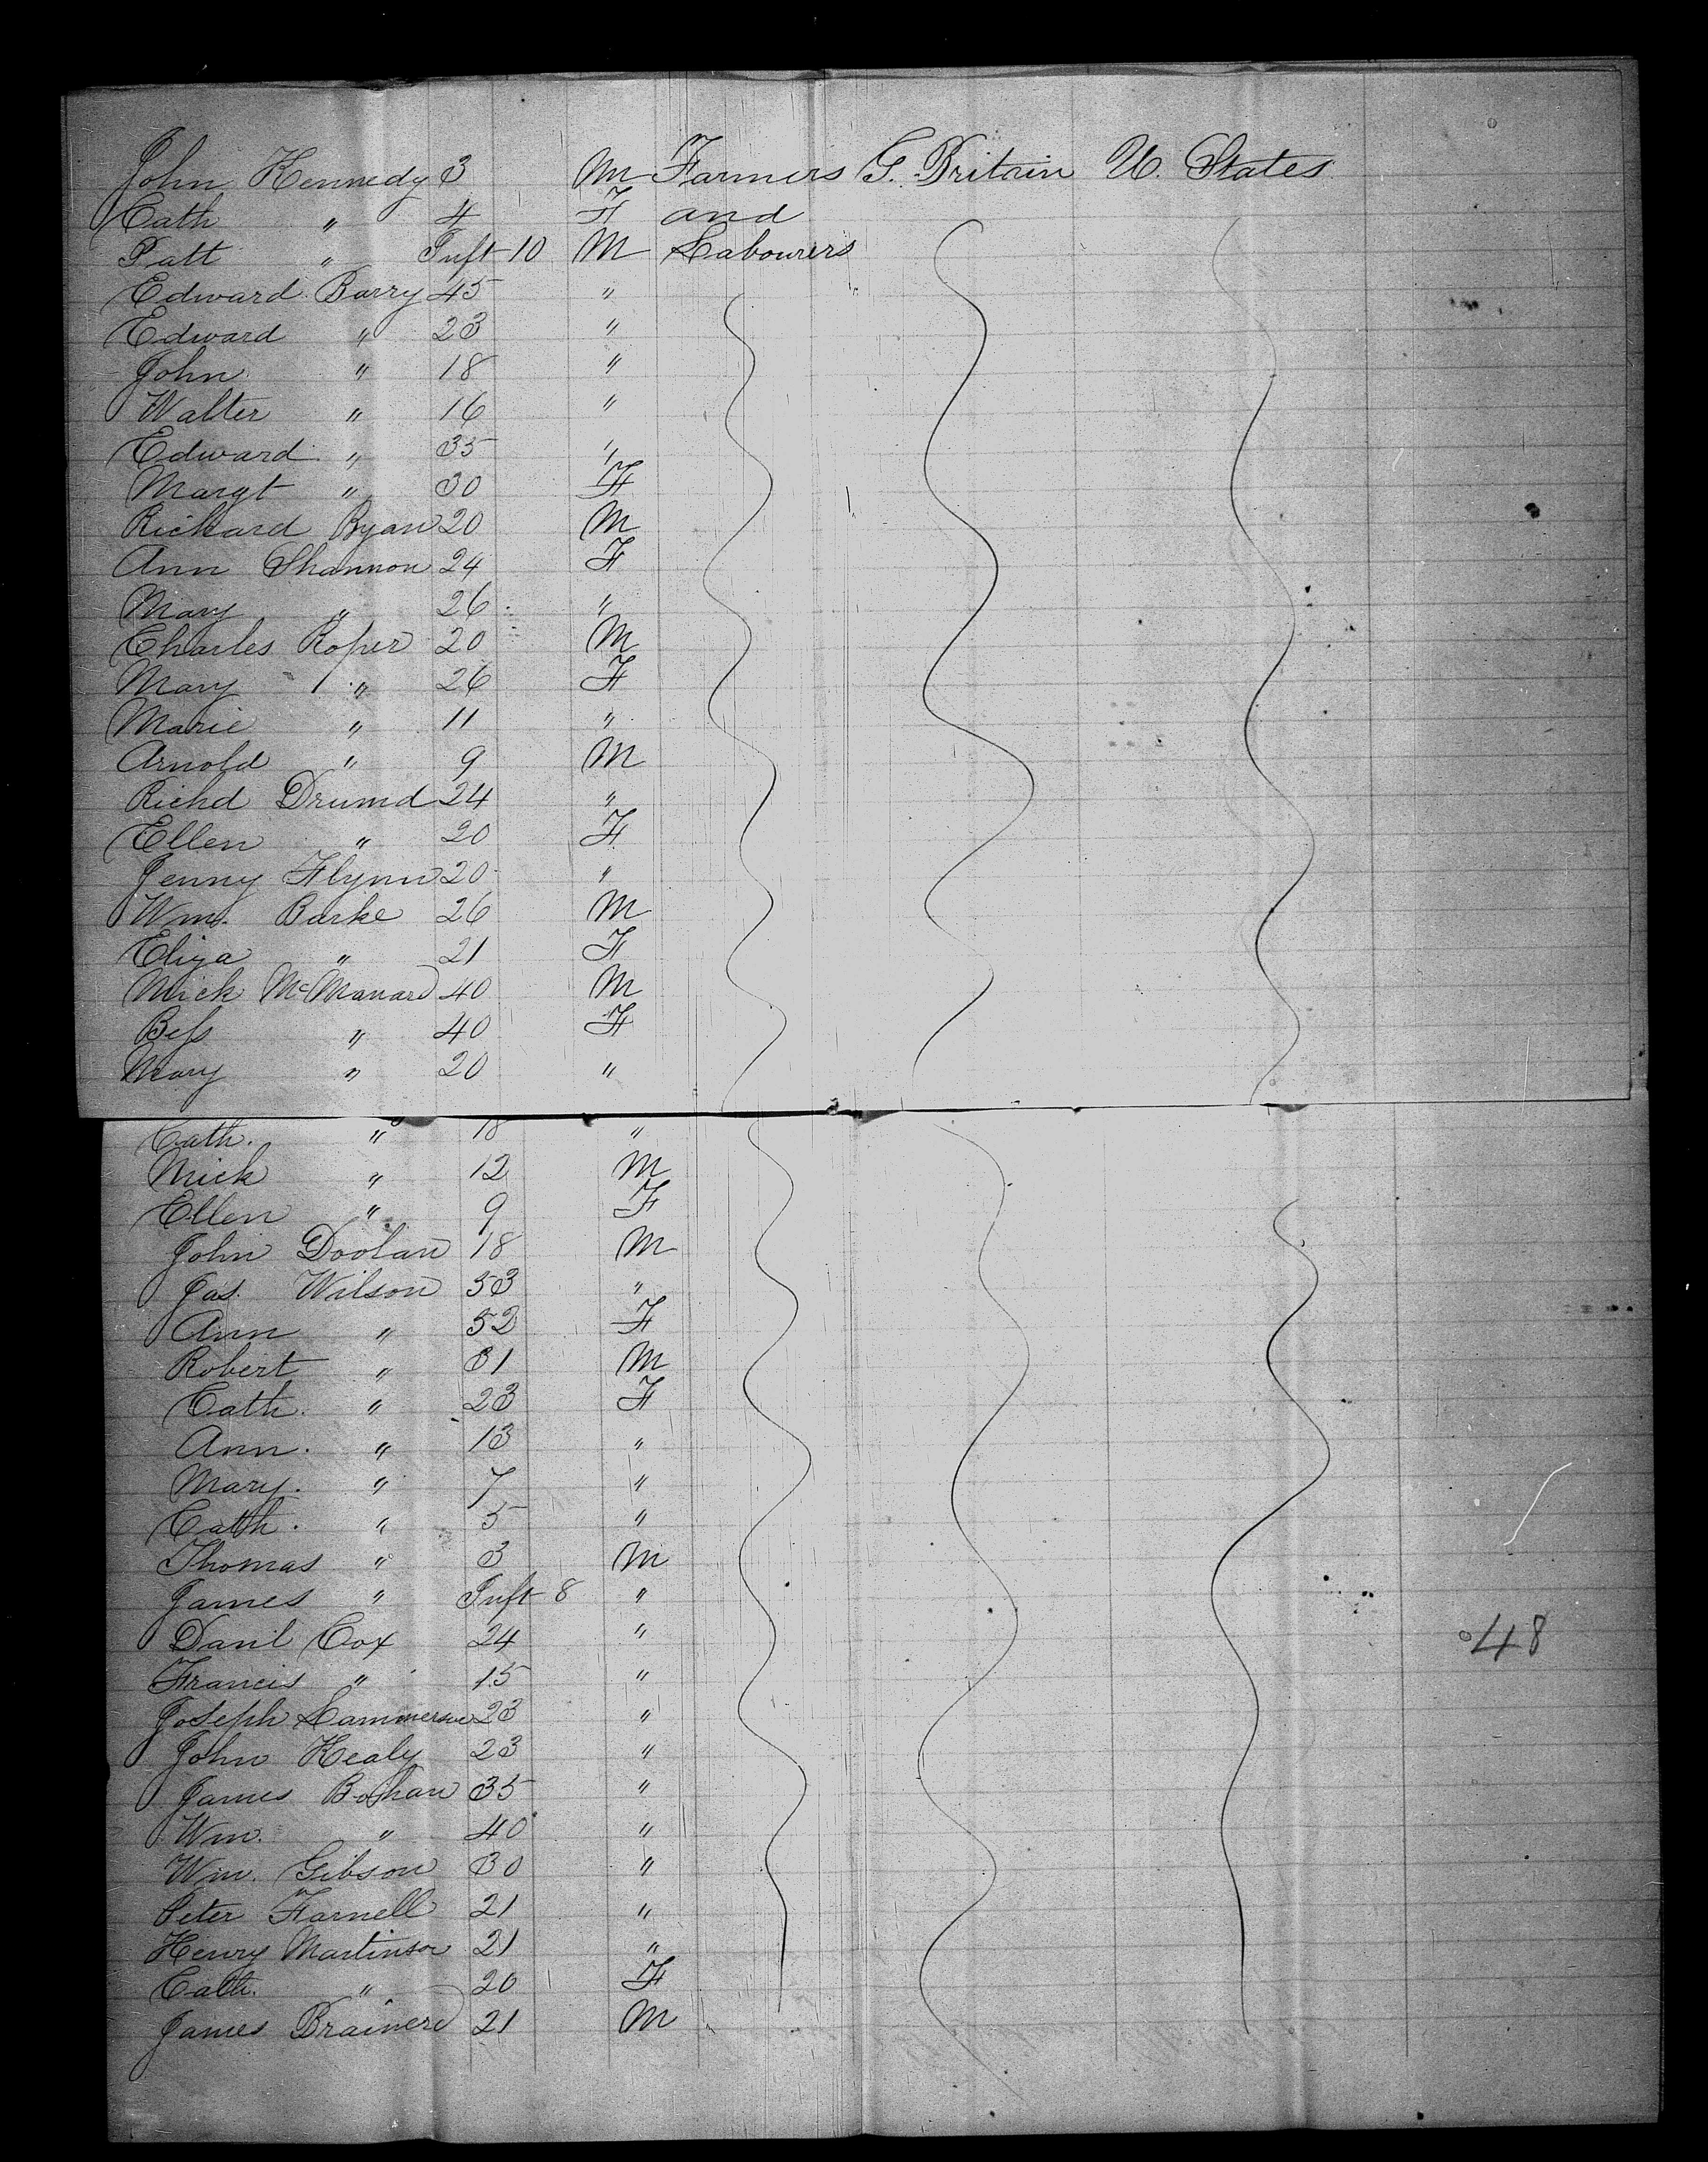 John Kennedy 3 M Farmers G. Britain U. States
Cath " 4 F and
Patt " Inft 10 M Labourers
Edward Barry 45 "
Edward " 23 "
John " 18 "
Walter " 16 "
Edward " 35 "
Margt " 30 F
Richard Ryan 20 M
Ann Shannon 24 F
Mary " 26 "
Charles Roper 20 M
Mary " 26 F
Marie " 11 "
Arnold " 9 M
Richd Drumd 24 "
Ellen " 20 F
Jenny Flynn 20 "
Wm. Burke 26 M
Eliza " 21 F
Mick McManard 40 M
Bess " 40 F
Mary " 20 "
Cath. " 18 "
Mick " 12 M
Ellen " 9 F
John Doolan 18 M
Jas. Wilson 53 "
Ann " 52 F
Robert " 31 M
Cath. " 23 F
Ann. " 13 "
Mary. " 7 "
Cath. " 5 "
Thomas " 3 M
James " Inft 8 "
Danl Cox 24 "
48
Francis " 15 "
Joseph 23 "
John Healy 23 "
James Bohan 35 "
Wm. " 40 "
Wm. Gibson 30 "
Peter Farnell 21 "
Henry Martinson 21 "
Cath. " 20 F
James Brainerd 21 M